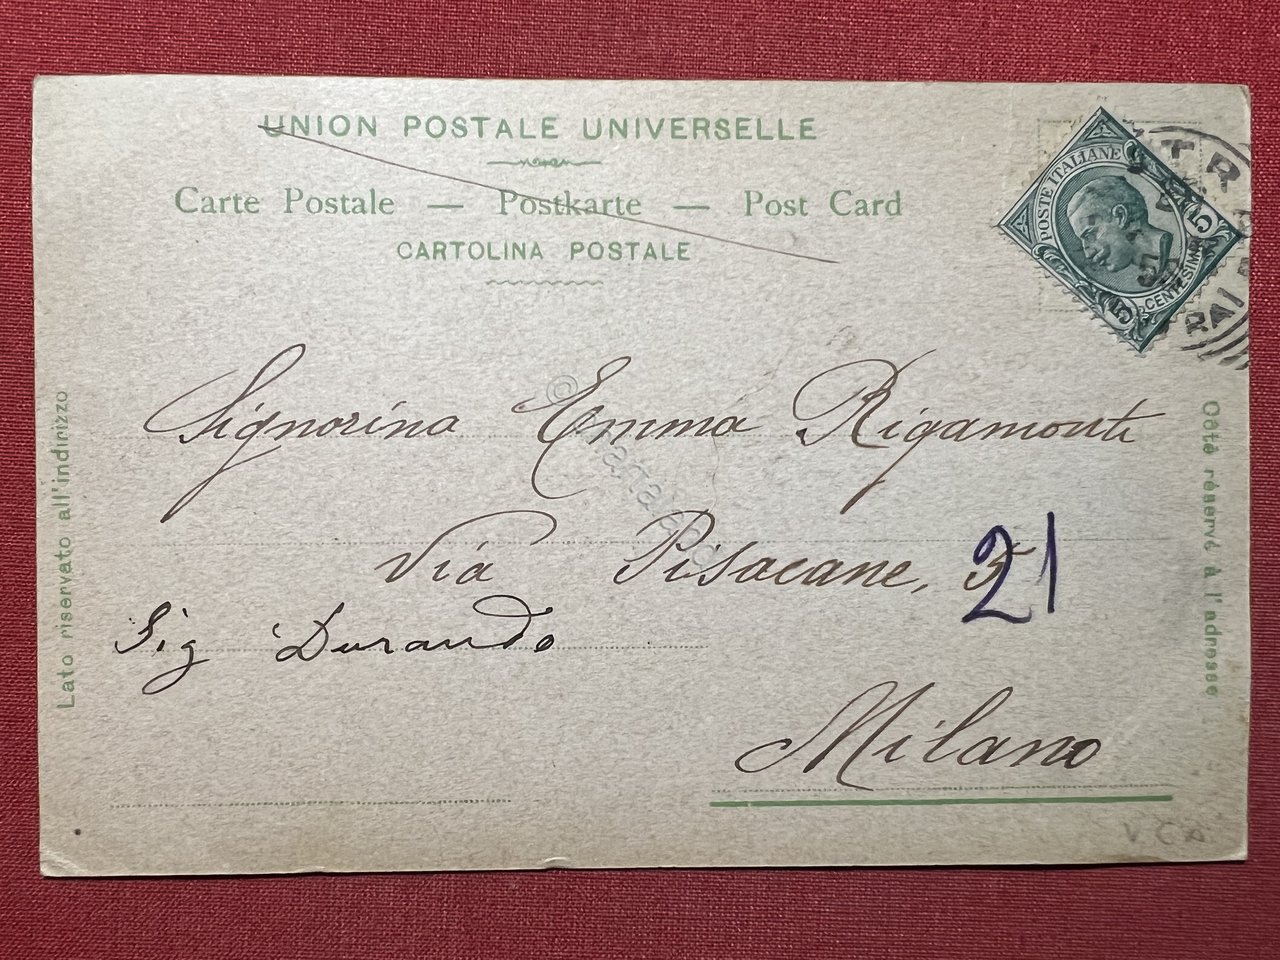 UNION POSTALE UNIVERSELLE
Carte Postale — Postkarte — Post Card
CARTOLINA POSTALE
POSTE ITALIANE
5 CENTESIMI 5
Signorina Emma Rigamonti
Via Pisacane, 21
Sig Durando
Milano
Lato riservato all'indirizzo
Côté réservé à l'adresse
VCA